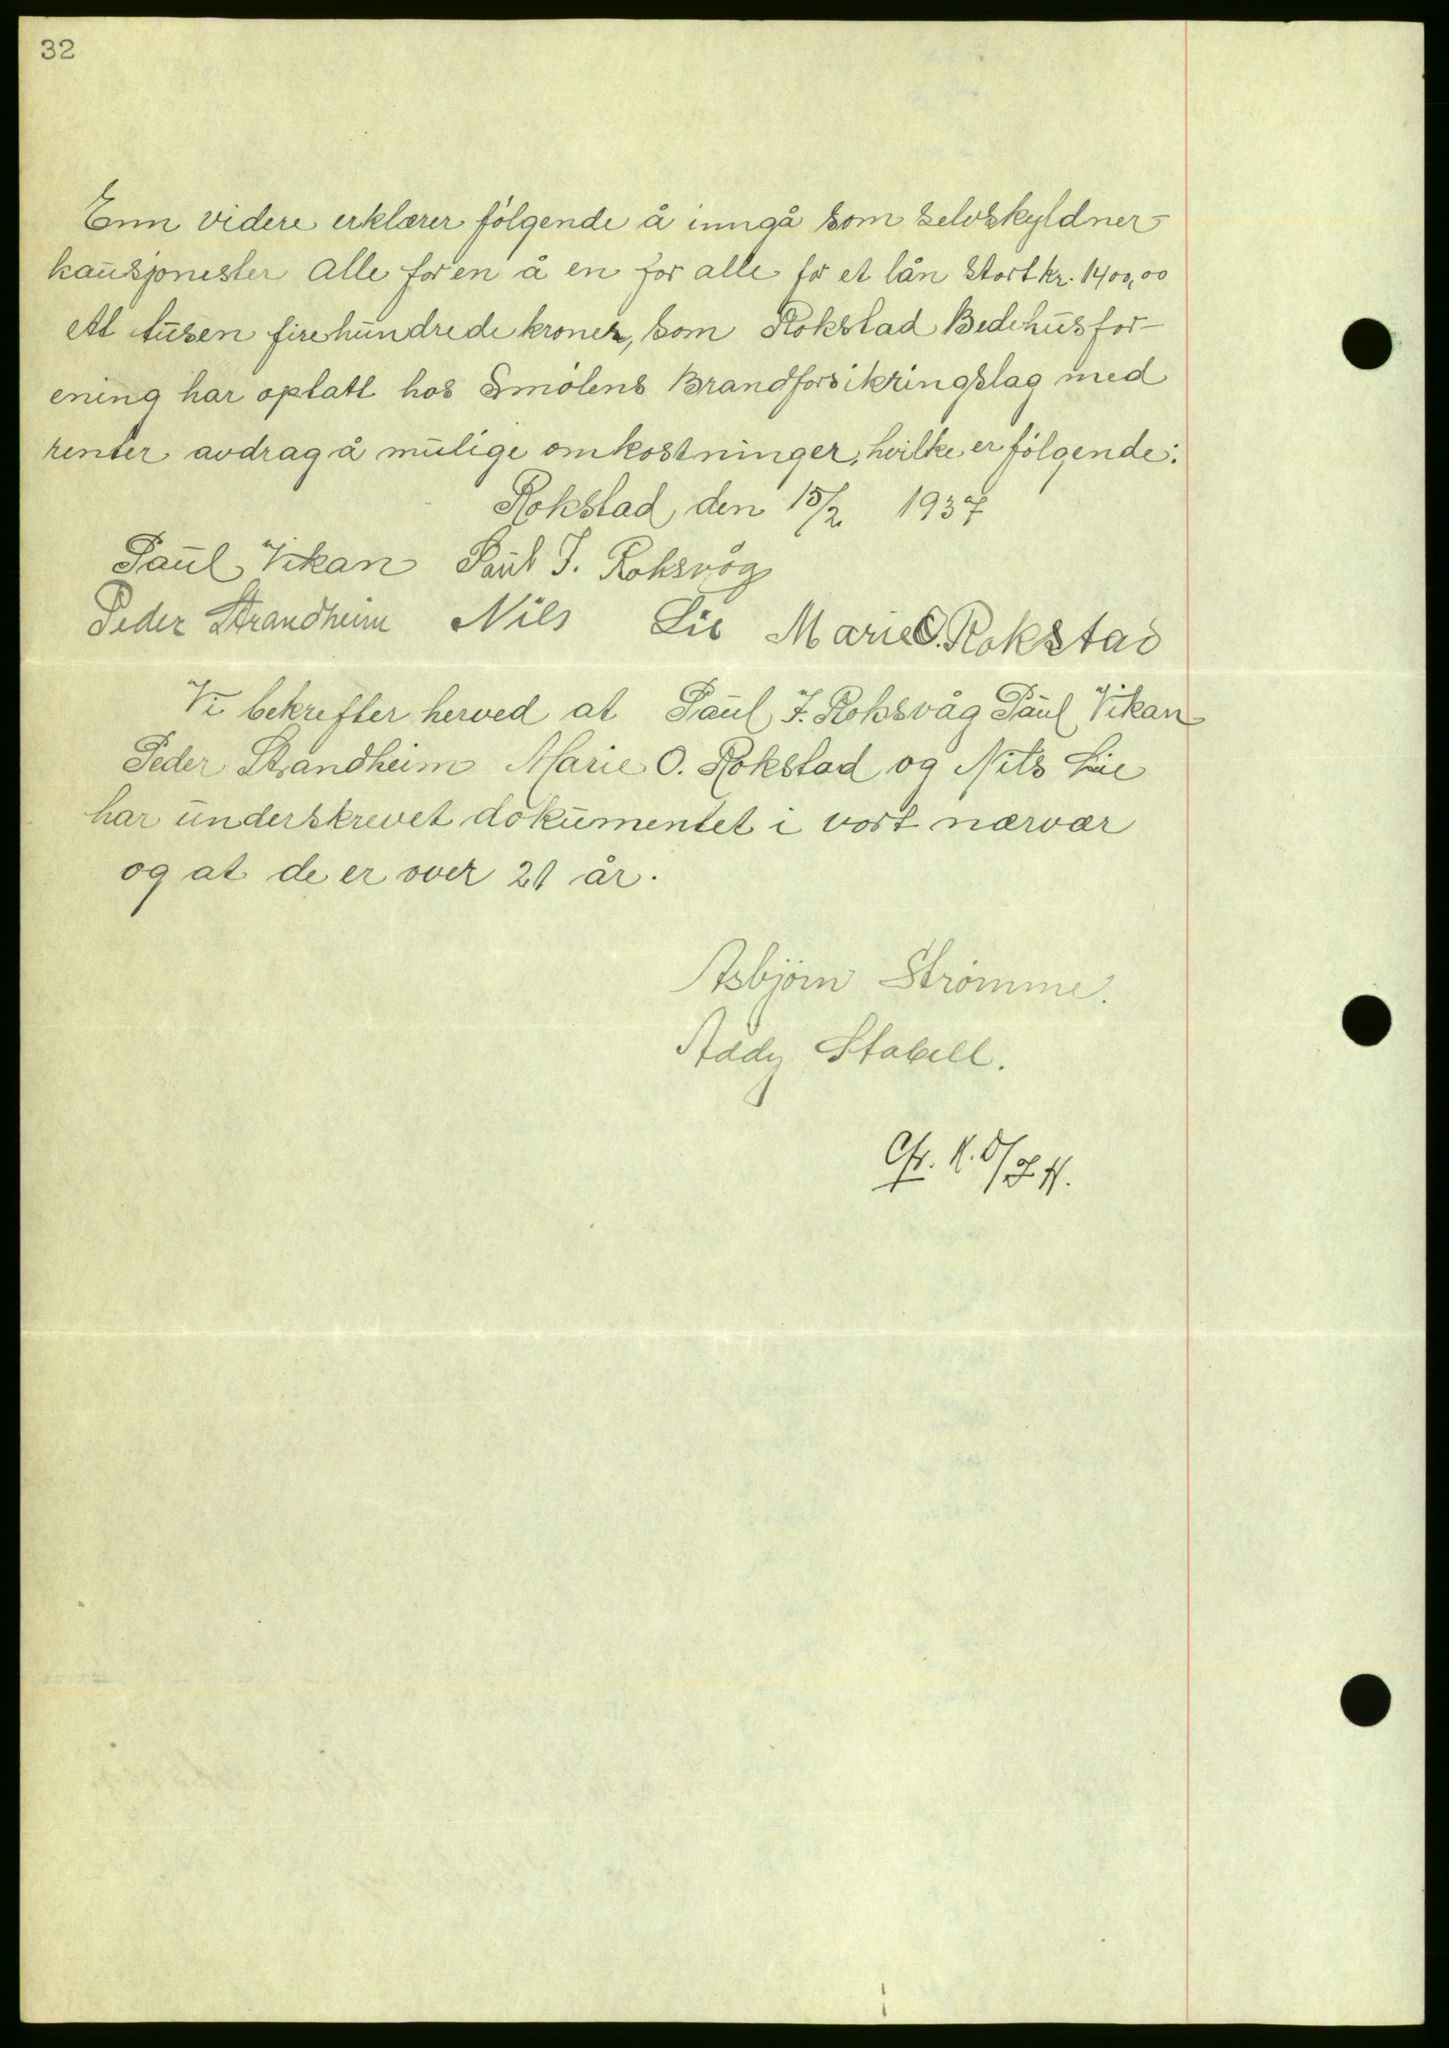 32
Enn videre erklærer følgende å inngå som selvskyldner-
kausjonister alle for en å en for alle for et lån stort kr. 1400,00
ett tusen firehundrede kroner, som Rokstad Bedehusfor-
ening har optatt hos Smølens Brandforsikringslag med
renter avdrag å mulige omkostninger, hvilke er følgende:
Rokstad, den 15/2 1937
Paul Vikan Paul J. Roksvåg
Peder Strandheim Nils Lie Marie O. Rokstad
Vi bekrefter herved at Paul J. Roksvåg Paul Vikan
Peder Strandheim Marie O. Rokstad og Nils Lie
har underskrevet dokumentet i vort nærvær
og at de er over 21 år.
Asbjørn Strømme.
Addy Stabell.